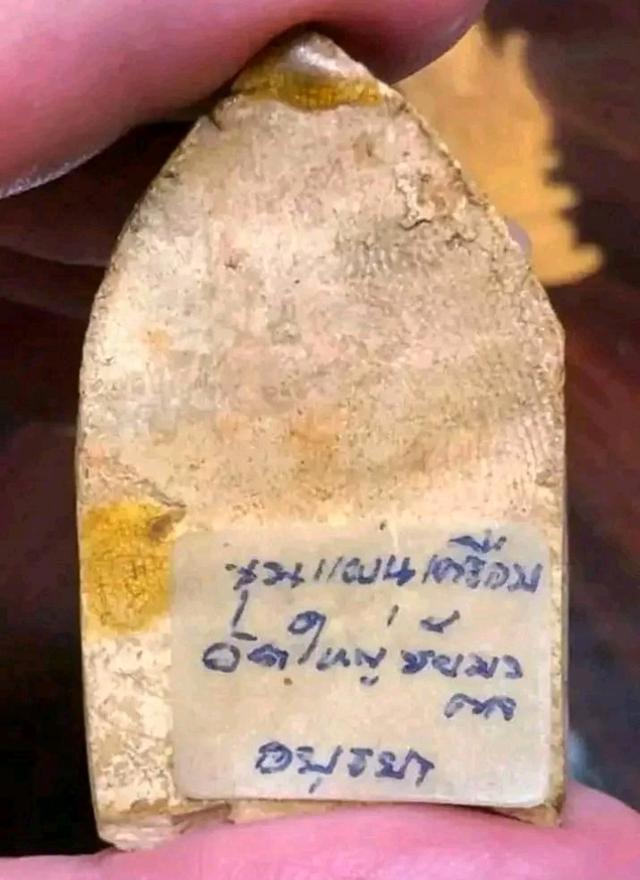 ขุนแผนเคลือบ
วัดใหญ่ชัยมง
คล
อยุธยา